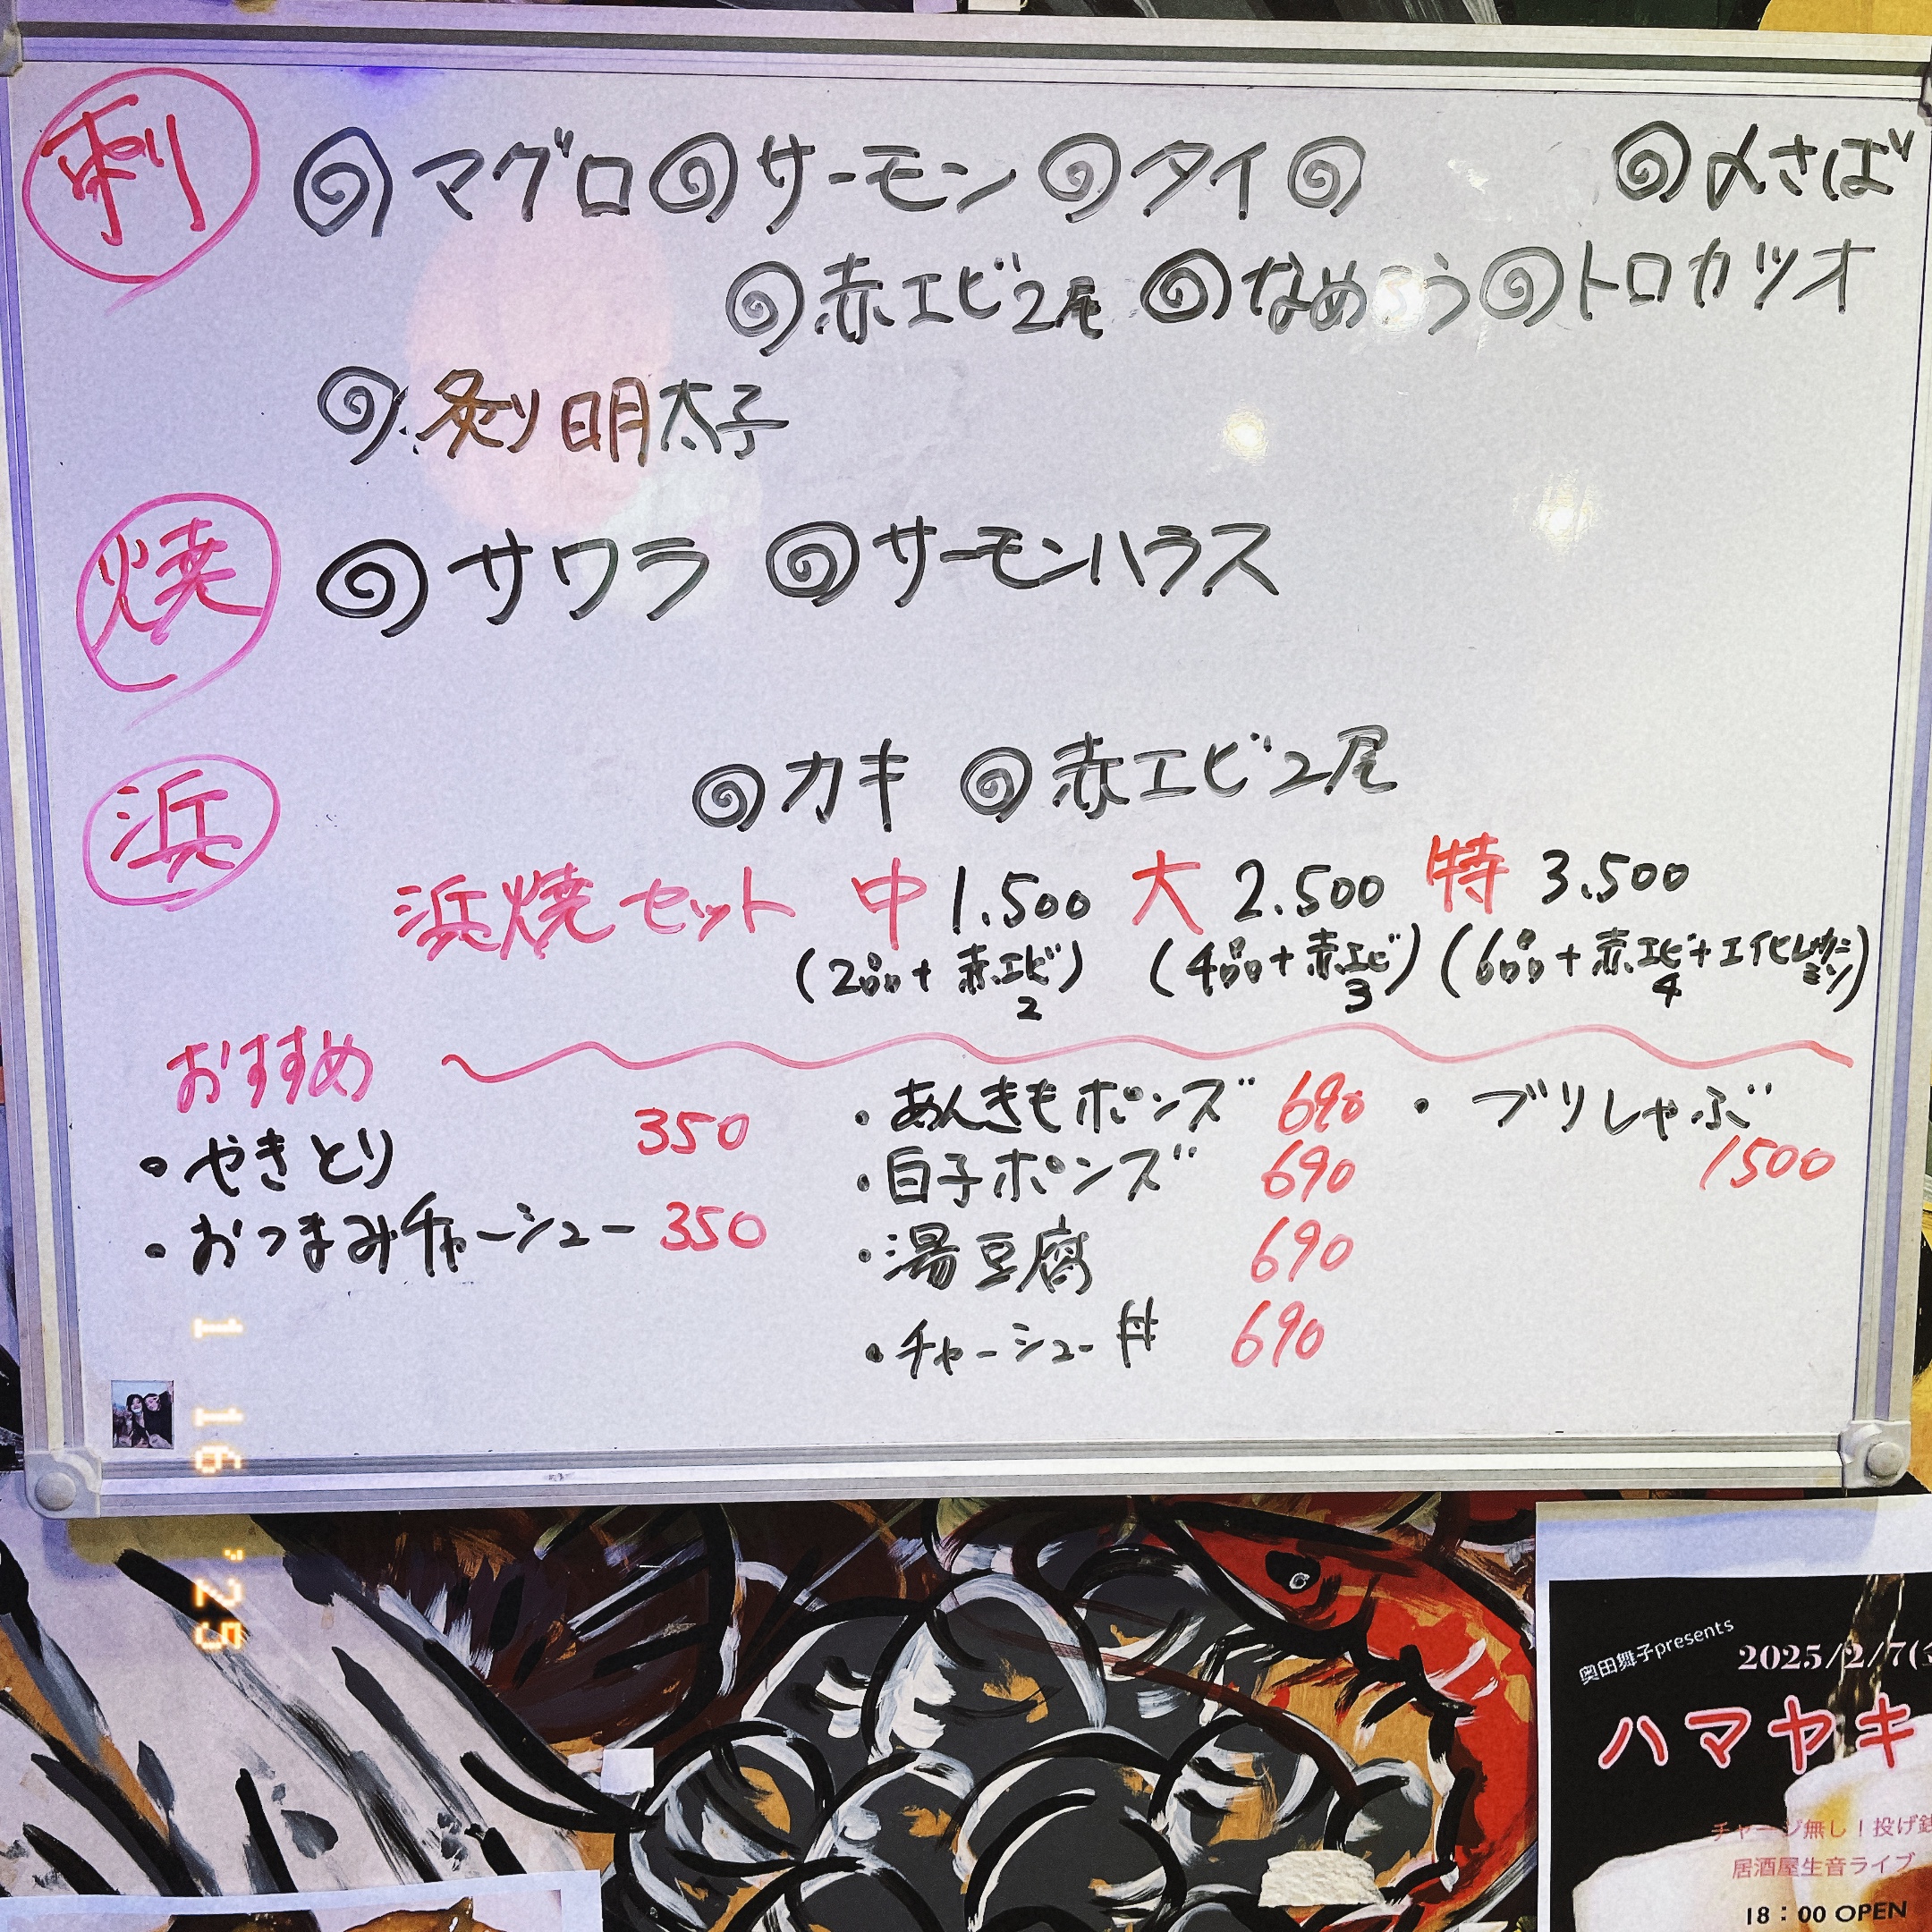 刺 マグロ サーモン タイ 〆さば
赤エビ2尾 なめろう トロカツオ
炙り明太子
焼 サワラ サーモンハラス
浜 カキ 赤エビ2尾
浜焼セット 中 1.500 大 2.500 特 3.500
(2品+赤エビ2) (4品+赤エビ3) (6品+赤エビ4+エイヒレ
おすすめ
・やきとり 350
・おつまみチャーシュー 350
・あんきもポンズ 690
・白子ポンズ 690
・湯豆腐 690
・チャーシュー丼 690
・ブリしゃぶ
1500
1 16 '25
奥田舞子presents
2025/2/7(
ハマヤキ
チャージ無し！投げ銭
居酒屋生音ライブ
18：00 OPEN